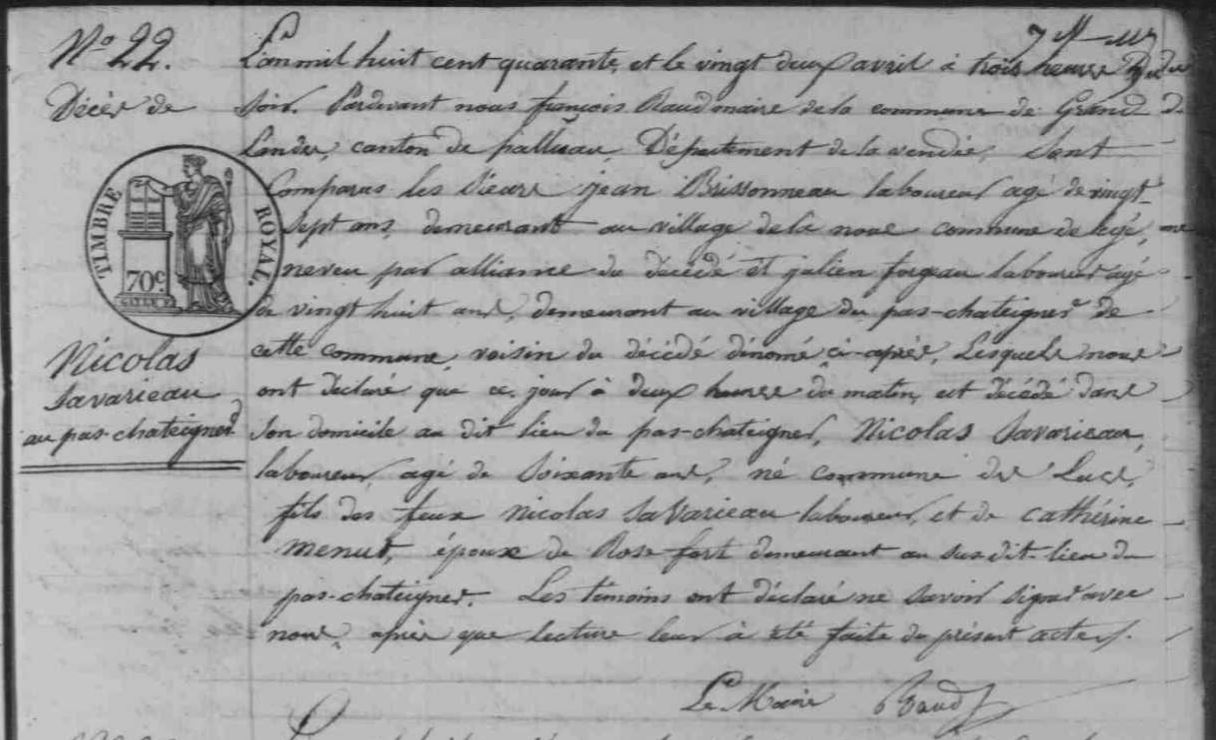 N° 22.
Décès de
TIMBRE ROYAL.
70c.
Nicolas
Savarieau
au pas-chateigner
L'an mil huit cent quarante, et le vingt deux avril à trois heures du
soir. Pardevant nous françois Raud maire de la commune de Grand
Landes, canton de palluau, Département de la vendée, Sont
Comparus les Sieurs jean Brissonneau laboureur agé de vingt
sept ans, demeurant au village de la noue commune de legé,
neveu par alliance du décédé et julien forgeau laboureur agé
de vingt huit ans, demeurant au village du pas-chateigner de
cette commune, voisin du décédé dénomé ci-après, Lesquels nous
ont déclaré que ce jour à deux heures du matin, est décédé dans
son domicile au dit lieu du pas-chateigner, Nicolas Savarieau,
laboureur, agé de Soixante ans, né commune des Lucs,
fils des feux Nicolas Savarieau laboureur, et de Cathérine
menut, époux de Rose fort demeurant au susdit lieu du
pas-chateigner. Les témoins ont déclaré ne savoir signer avec
nous, après que lecture leur à été faite du présent acte.
Le Maire Raud